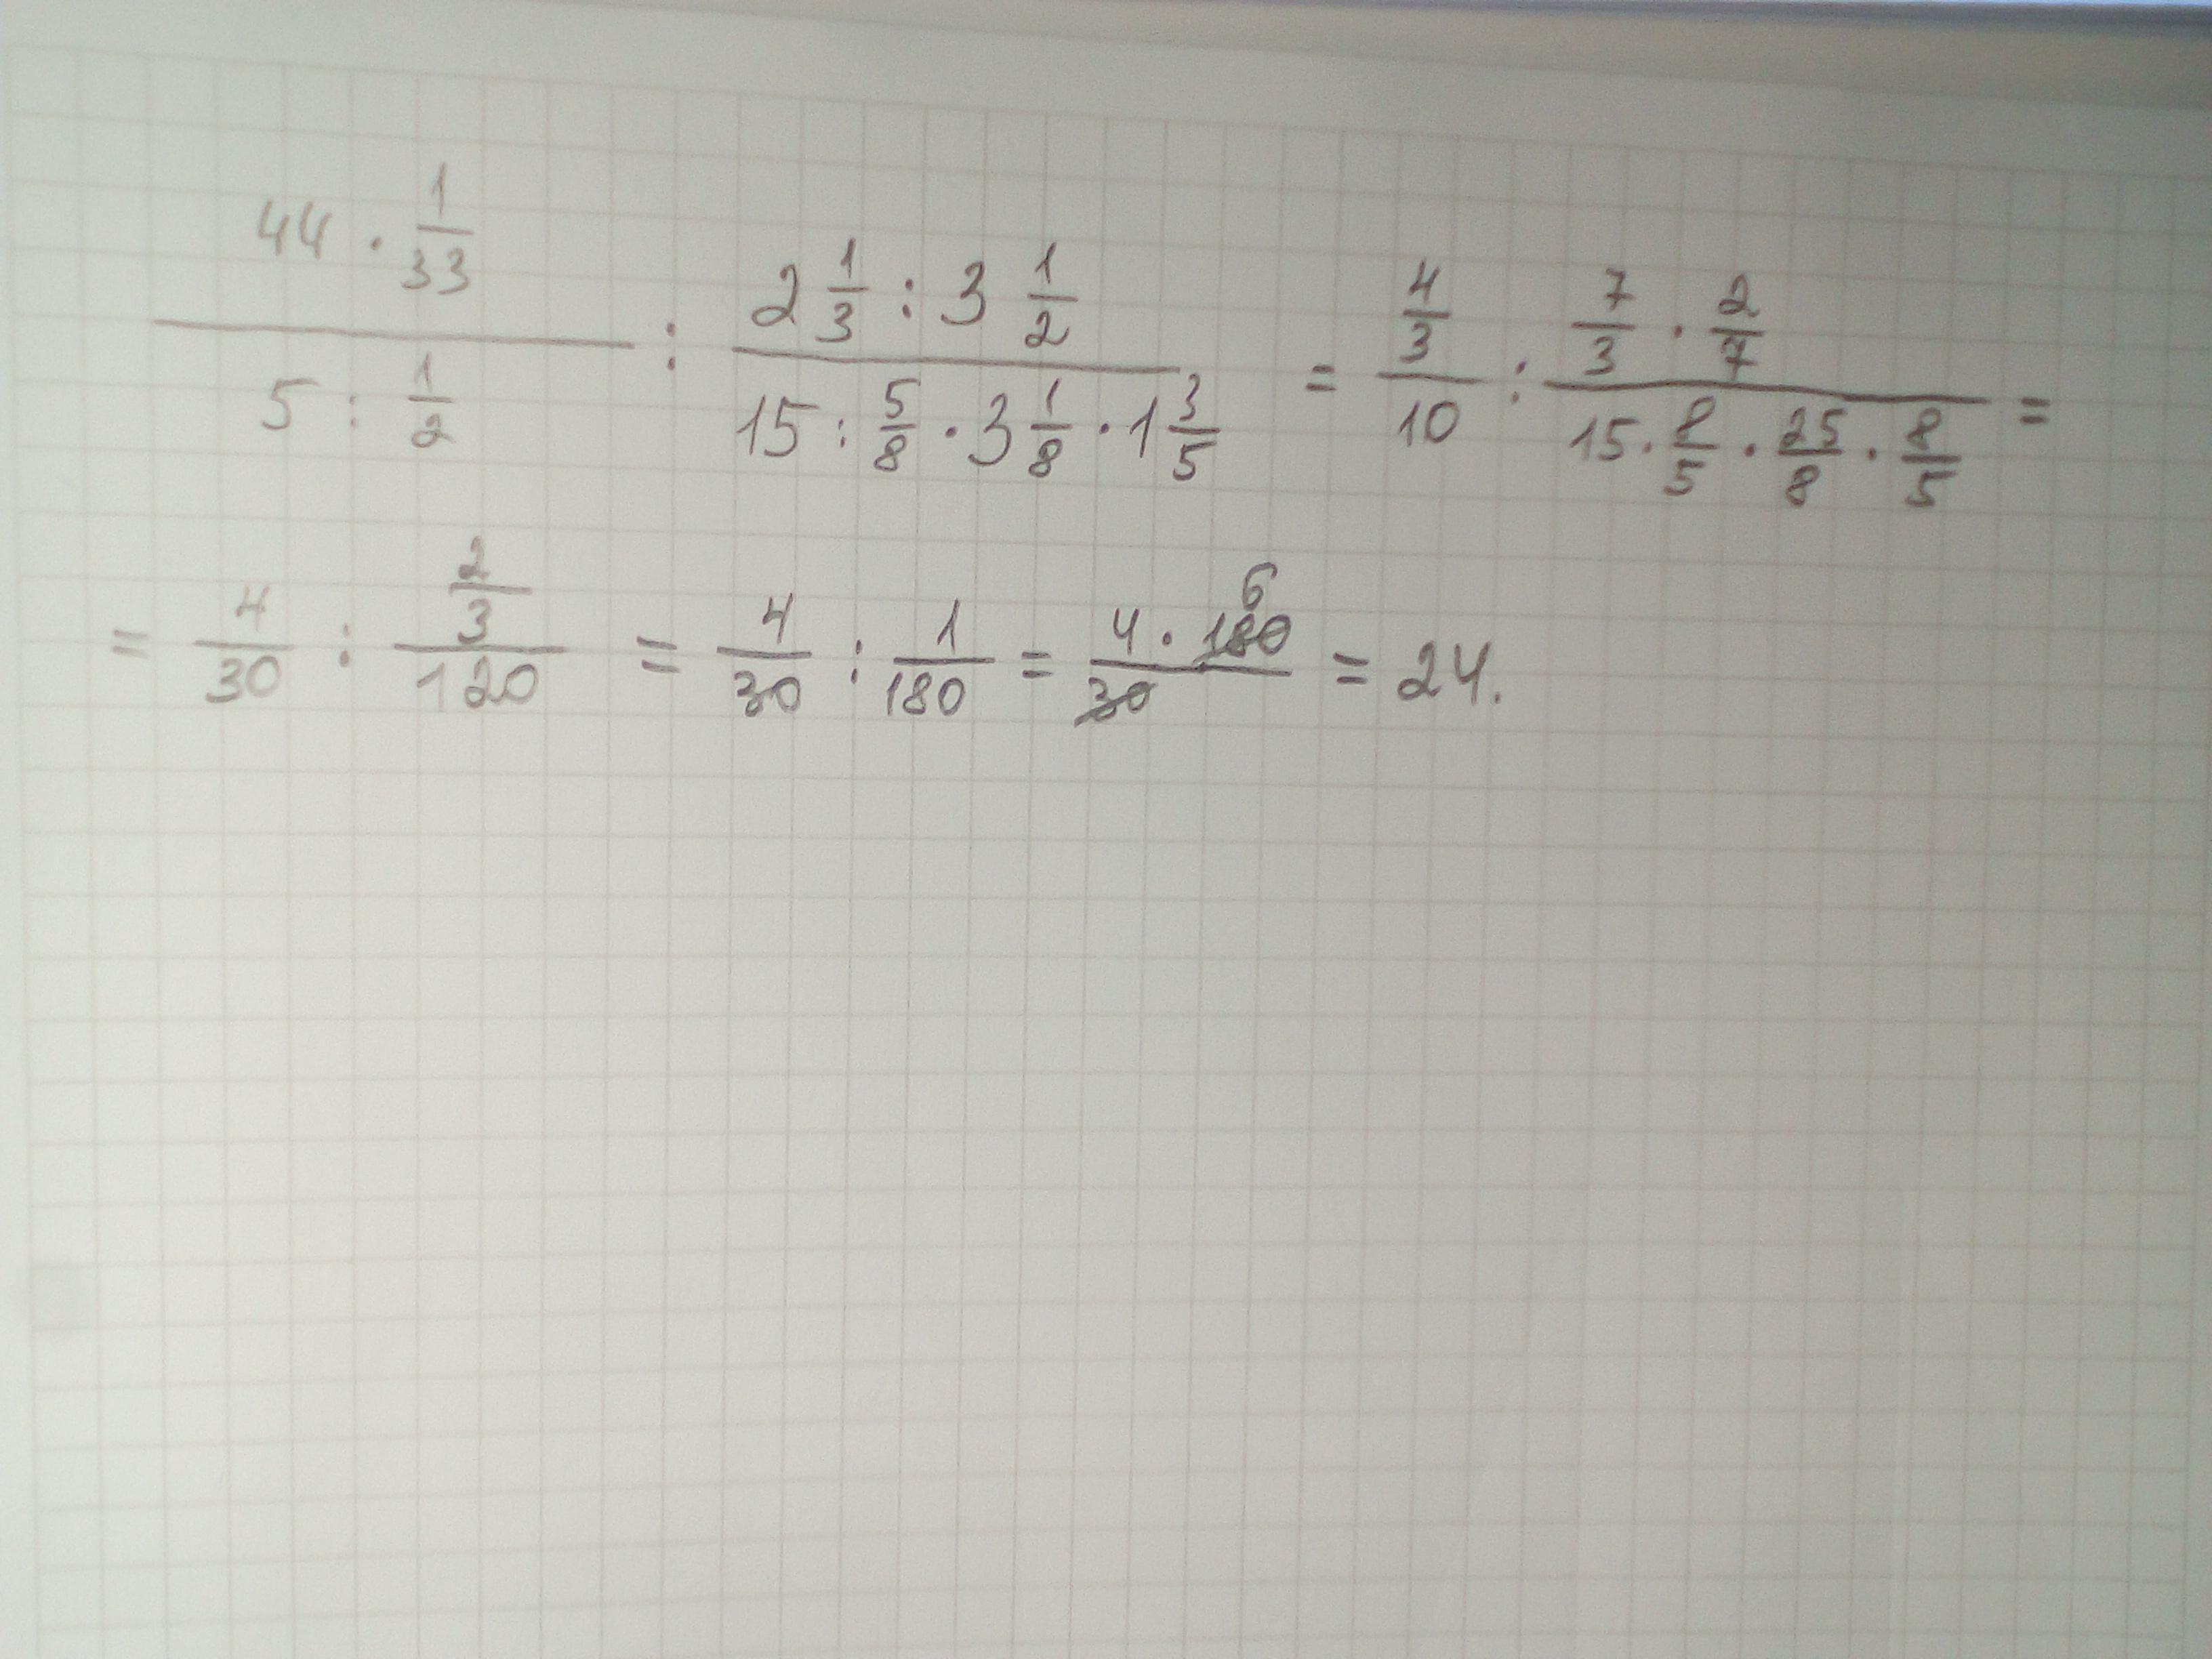 (44 · 1/33)/(5 : 1/2) : (2 1/3 : 3 1/2)/(15 : 5/8 · 3 1/8 · 1 3/5) = (4/3)/10 : (7/3 · 2/7)/(15 · 8/5 · 25/8 · 8/5) =
= 4/30 : (2/3)/120 = 4/30 : 1/180 = (4 · 180 6)/30 = 24.